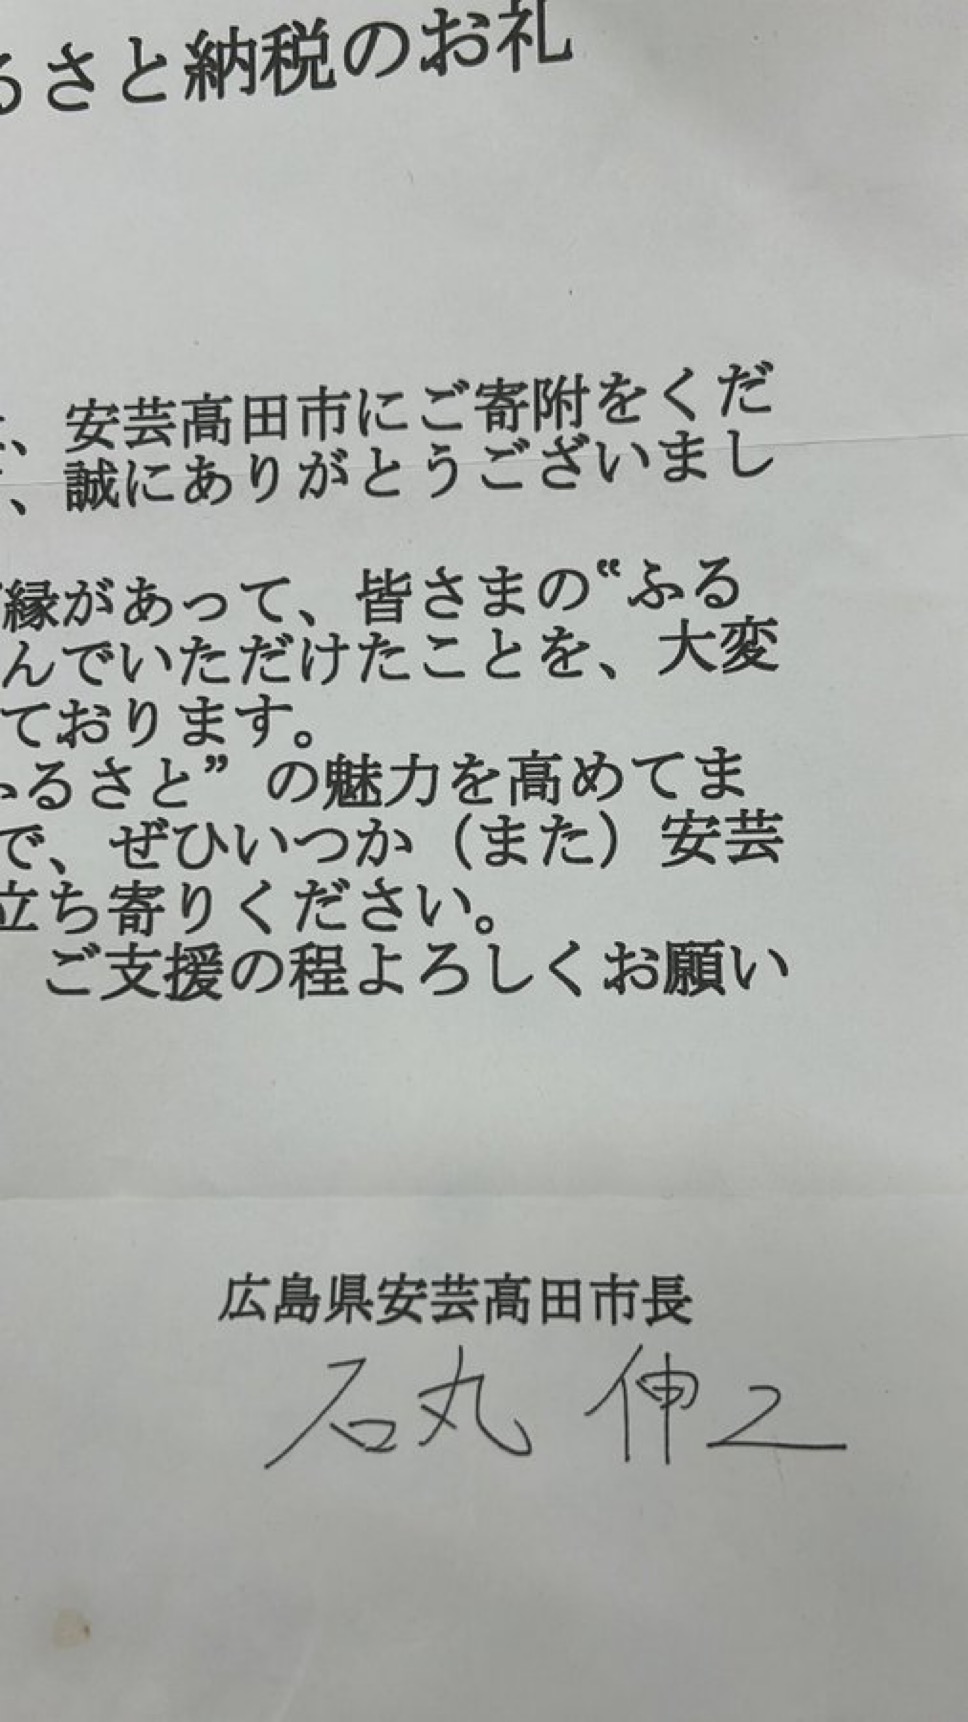 るさと納税のお礼
、安芸高田市にご寄附をくだ
、誠にありがとうございまし
縁があって、皆さまの“ふる
んでいただけたことを、大変
ております。
ふるさと”の魅力を高めてま
で、ぜひいつか（また）安芸
立ち寄りください。
ご支援の程よろしくお願い
広島県安芸高田市長
石丸 伸二